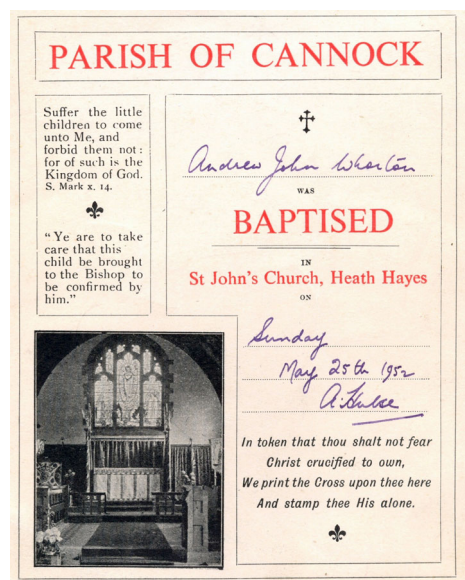 PARISH OF CANNOCK
Suffer the little
children to come
unto Me, and
forbid them not:
for of such is the
Kingdom of God.
S. Mark x. 14.
"Ye are to take
care that this
child be brought
to the Bishop to
be confirmed by
him."
Andrew John Wharton
WAS
BAPTISED
IN
St John's Church, Heath Hayes
ON
Sunday
May 25th 1952
A. Hulse
In token that thou shalt not fear
Christ crucified to own,
We print the Cross upon thee here
And stamp thee His alone.